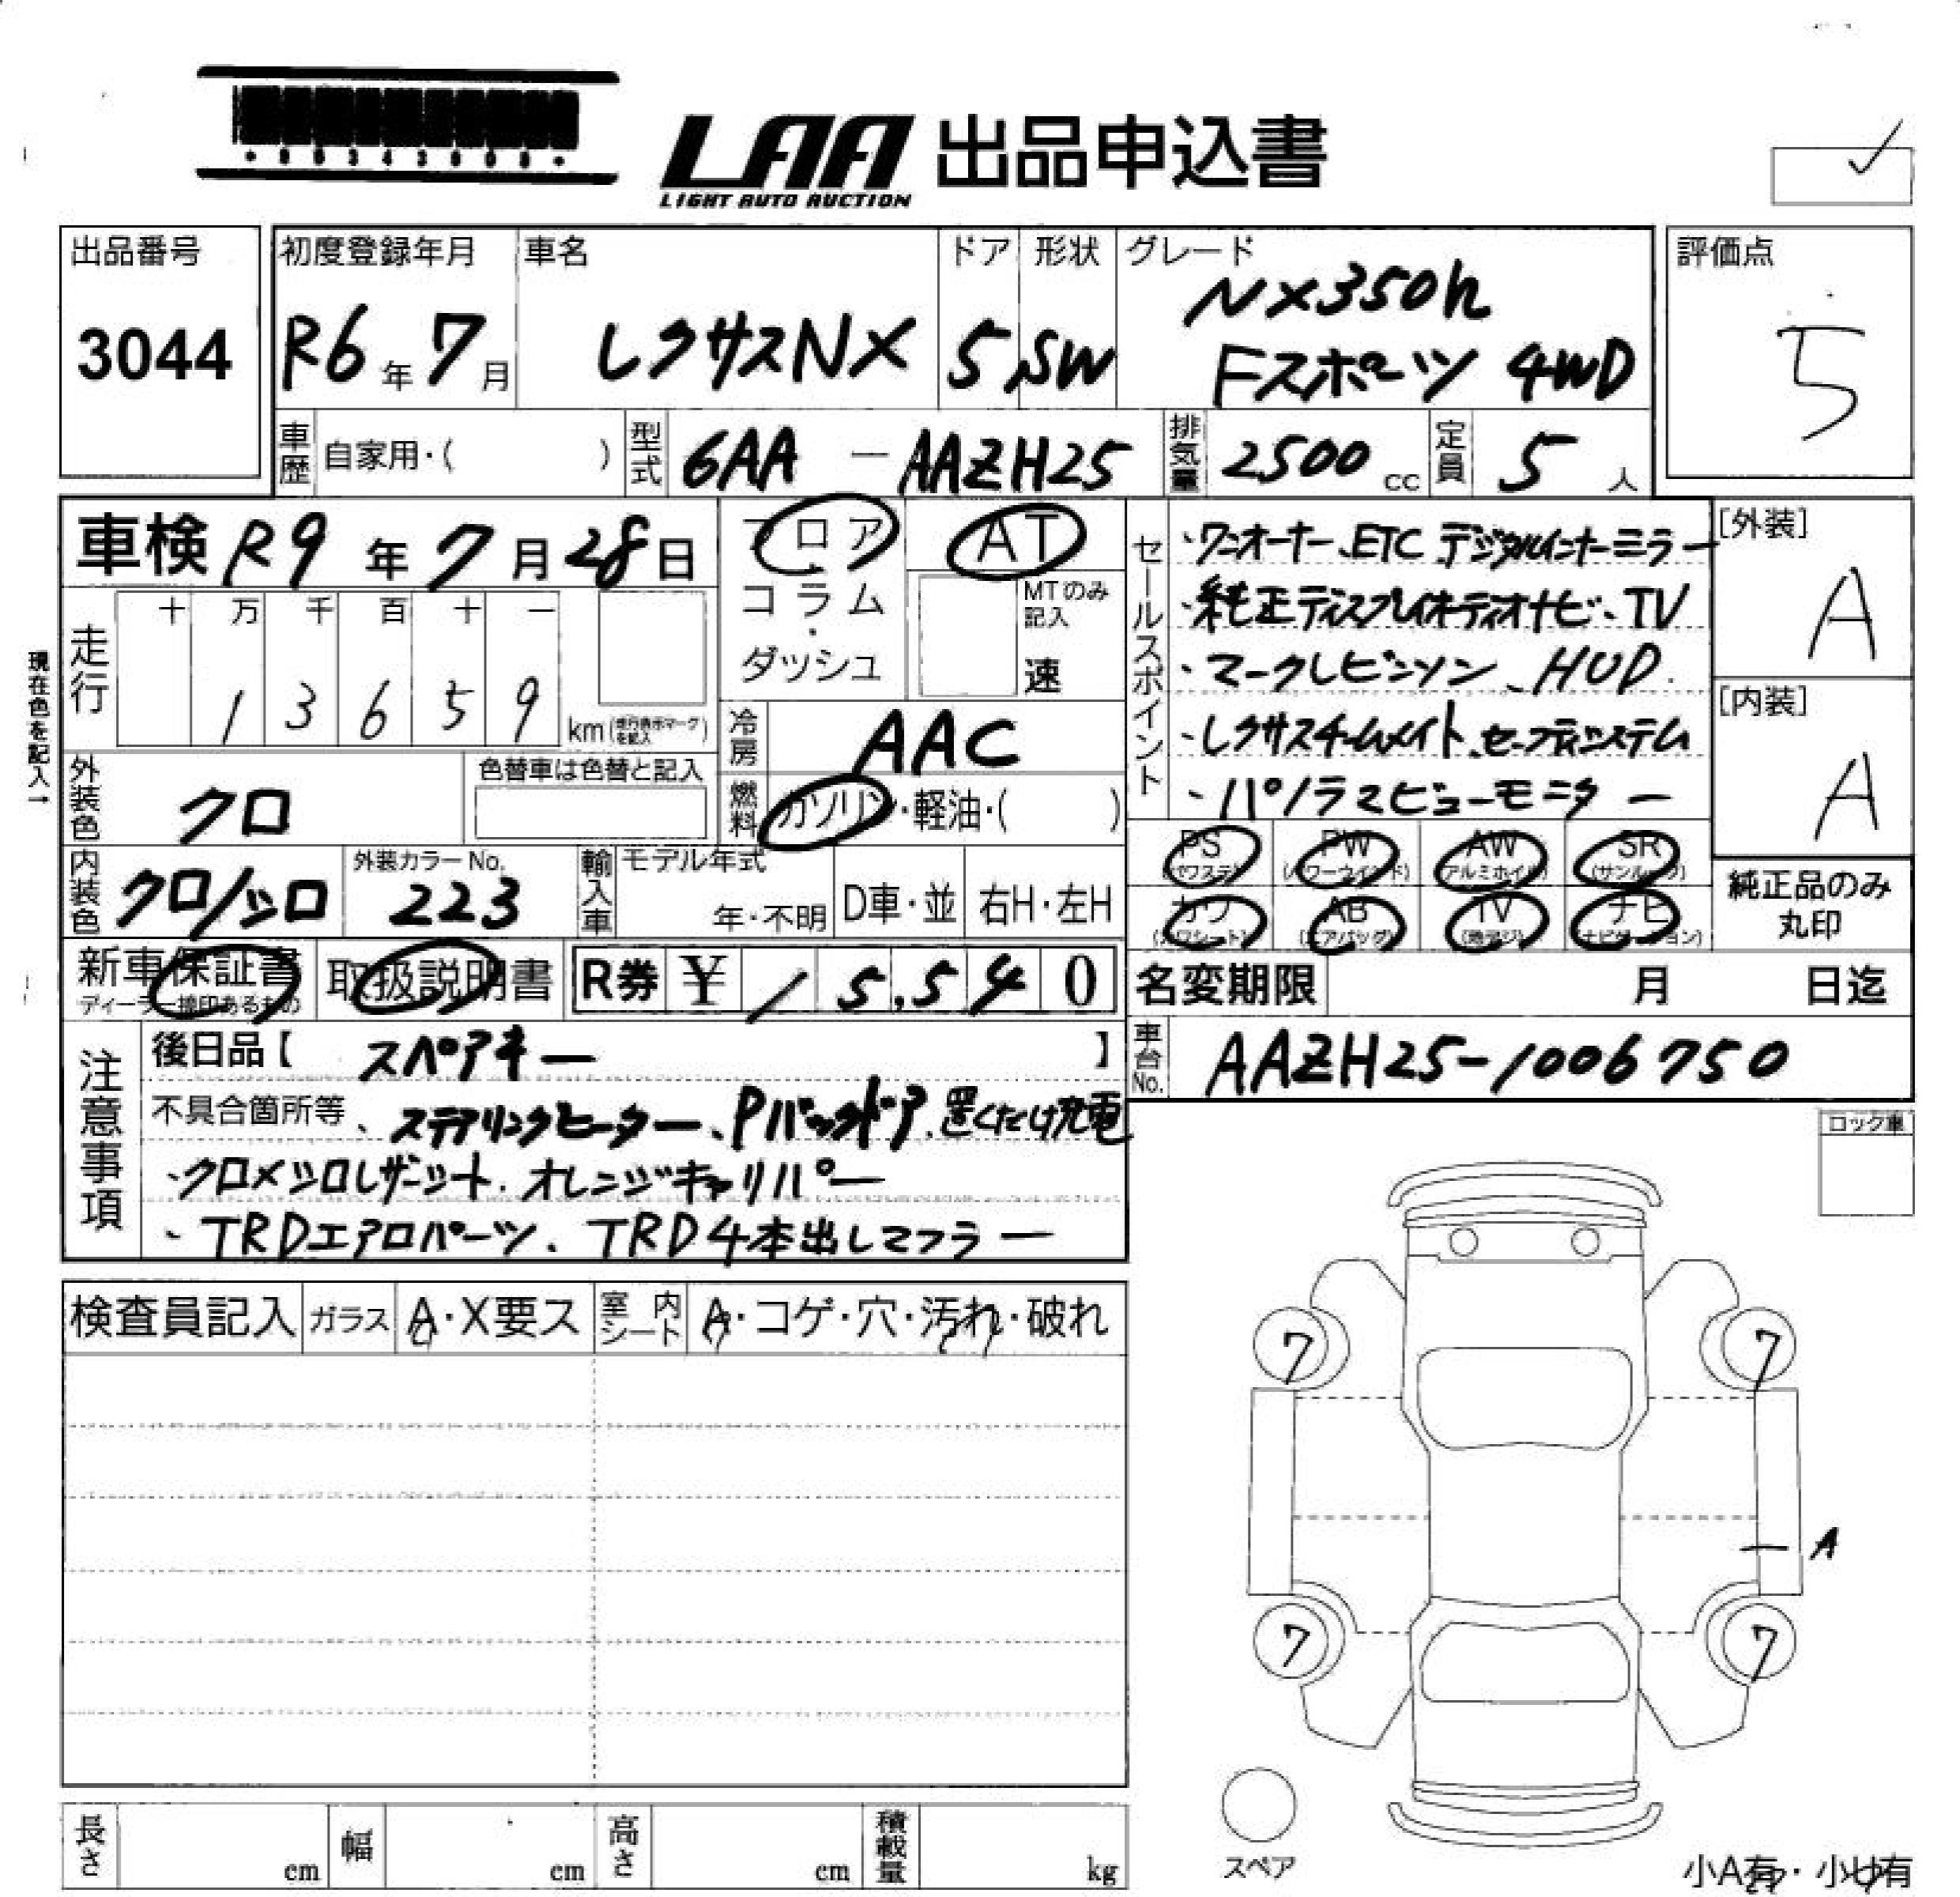 LAA 出品申込書
LIGHT AUTO AUCTION
出品番号
3044
初度登録年月
R6年7月
車名
レクサスNX
ドア
5
形状
SW
グレード
NX350h
Fスポーツ 4WD
評価点
5
車歴 自家用・( )
型式 6AA-AAZH25
排気量 2500cc
定員 5人
車検 R9年7月28日
フロア
コラム
・
ダッシュ
AT
MTのみ記入
速
走行
十 万 千 百 十 一
1 3 6 5 9 km(走行表示マークを記入)
現在色を記入→
外装色 クロ
色替車は色替と記入
冷房 AAC
燃料 ガソリン・軽油・( )
内装色 クロ/シロ
外装カラーNo.
223
輸入車
モデル年式
年・不明
D車・並
右H・左H
セールスポイント
・ワンオーナー、ETC デジタルインナーミラー
・純正ディスプレイオーディオナビ、TV
・マークレビンソン、HUD
・レクサスチームメイト、セーフティシステム
・パノラマビューモニター
[外装]
A
[内装]
A
PS (パワステ)
PW (パワーウインド)
AW (アルミホイル)
SR (サンルーフ)
カワ (カワシート)
AB (エアバッグ)
TV (地デジ)
ナビ (ナビゲーション)
純正品のみ
丸印
新車保証書
ディーラー捺印あるもの
取扱説明書
R券 ¥ 15,540
名変期限 月 日迄
車台No. AAZH25-1006750
注意事項
後日品【 スペアキー 】
不具合箇所等、ステアリングヒーター、Pバックドア、置くだけ充電
・クロ×シロレザーシート、オレンジキャリパー
・TRDエアロパーツ、TRD4本出しマフラー
ロック車
検査員記入
ガラス A・X要ス
室内シート A・コゲ・穴・汚れ・破れ
7
7
A
7
7
スペア
長さ cm
幅 cm
高さ cm
積載量 kg
小A有・小U有